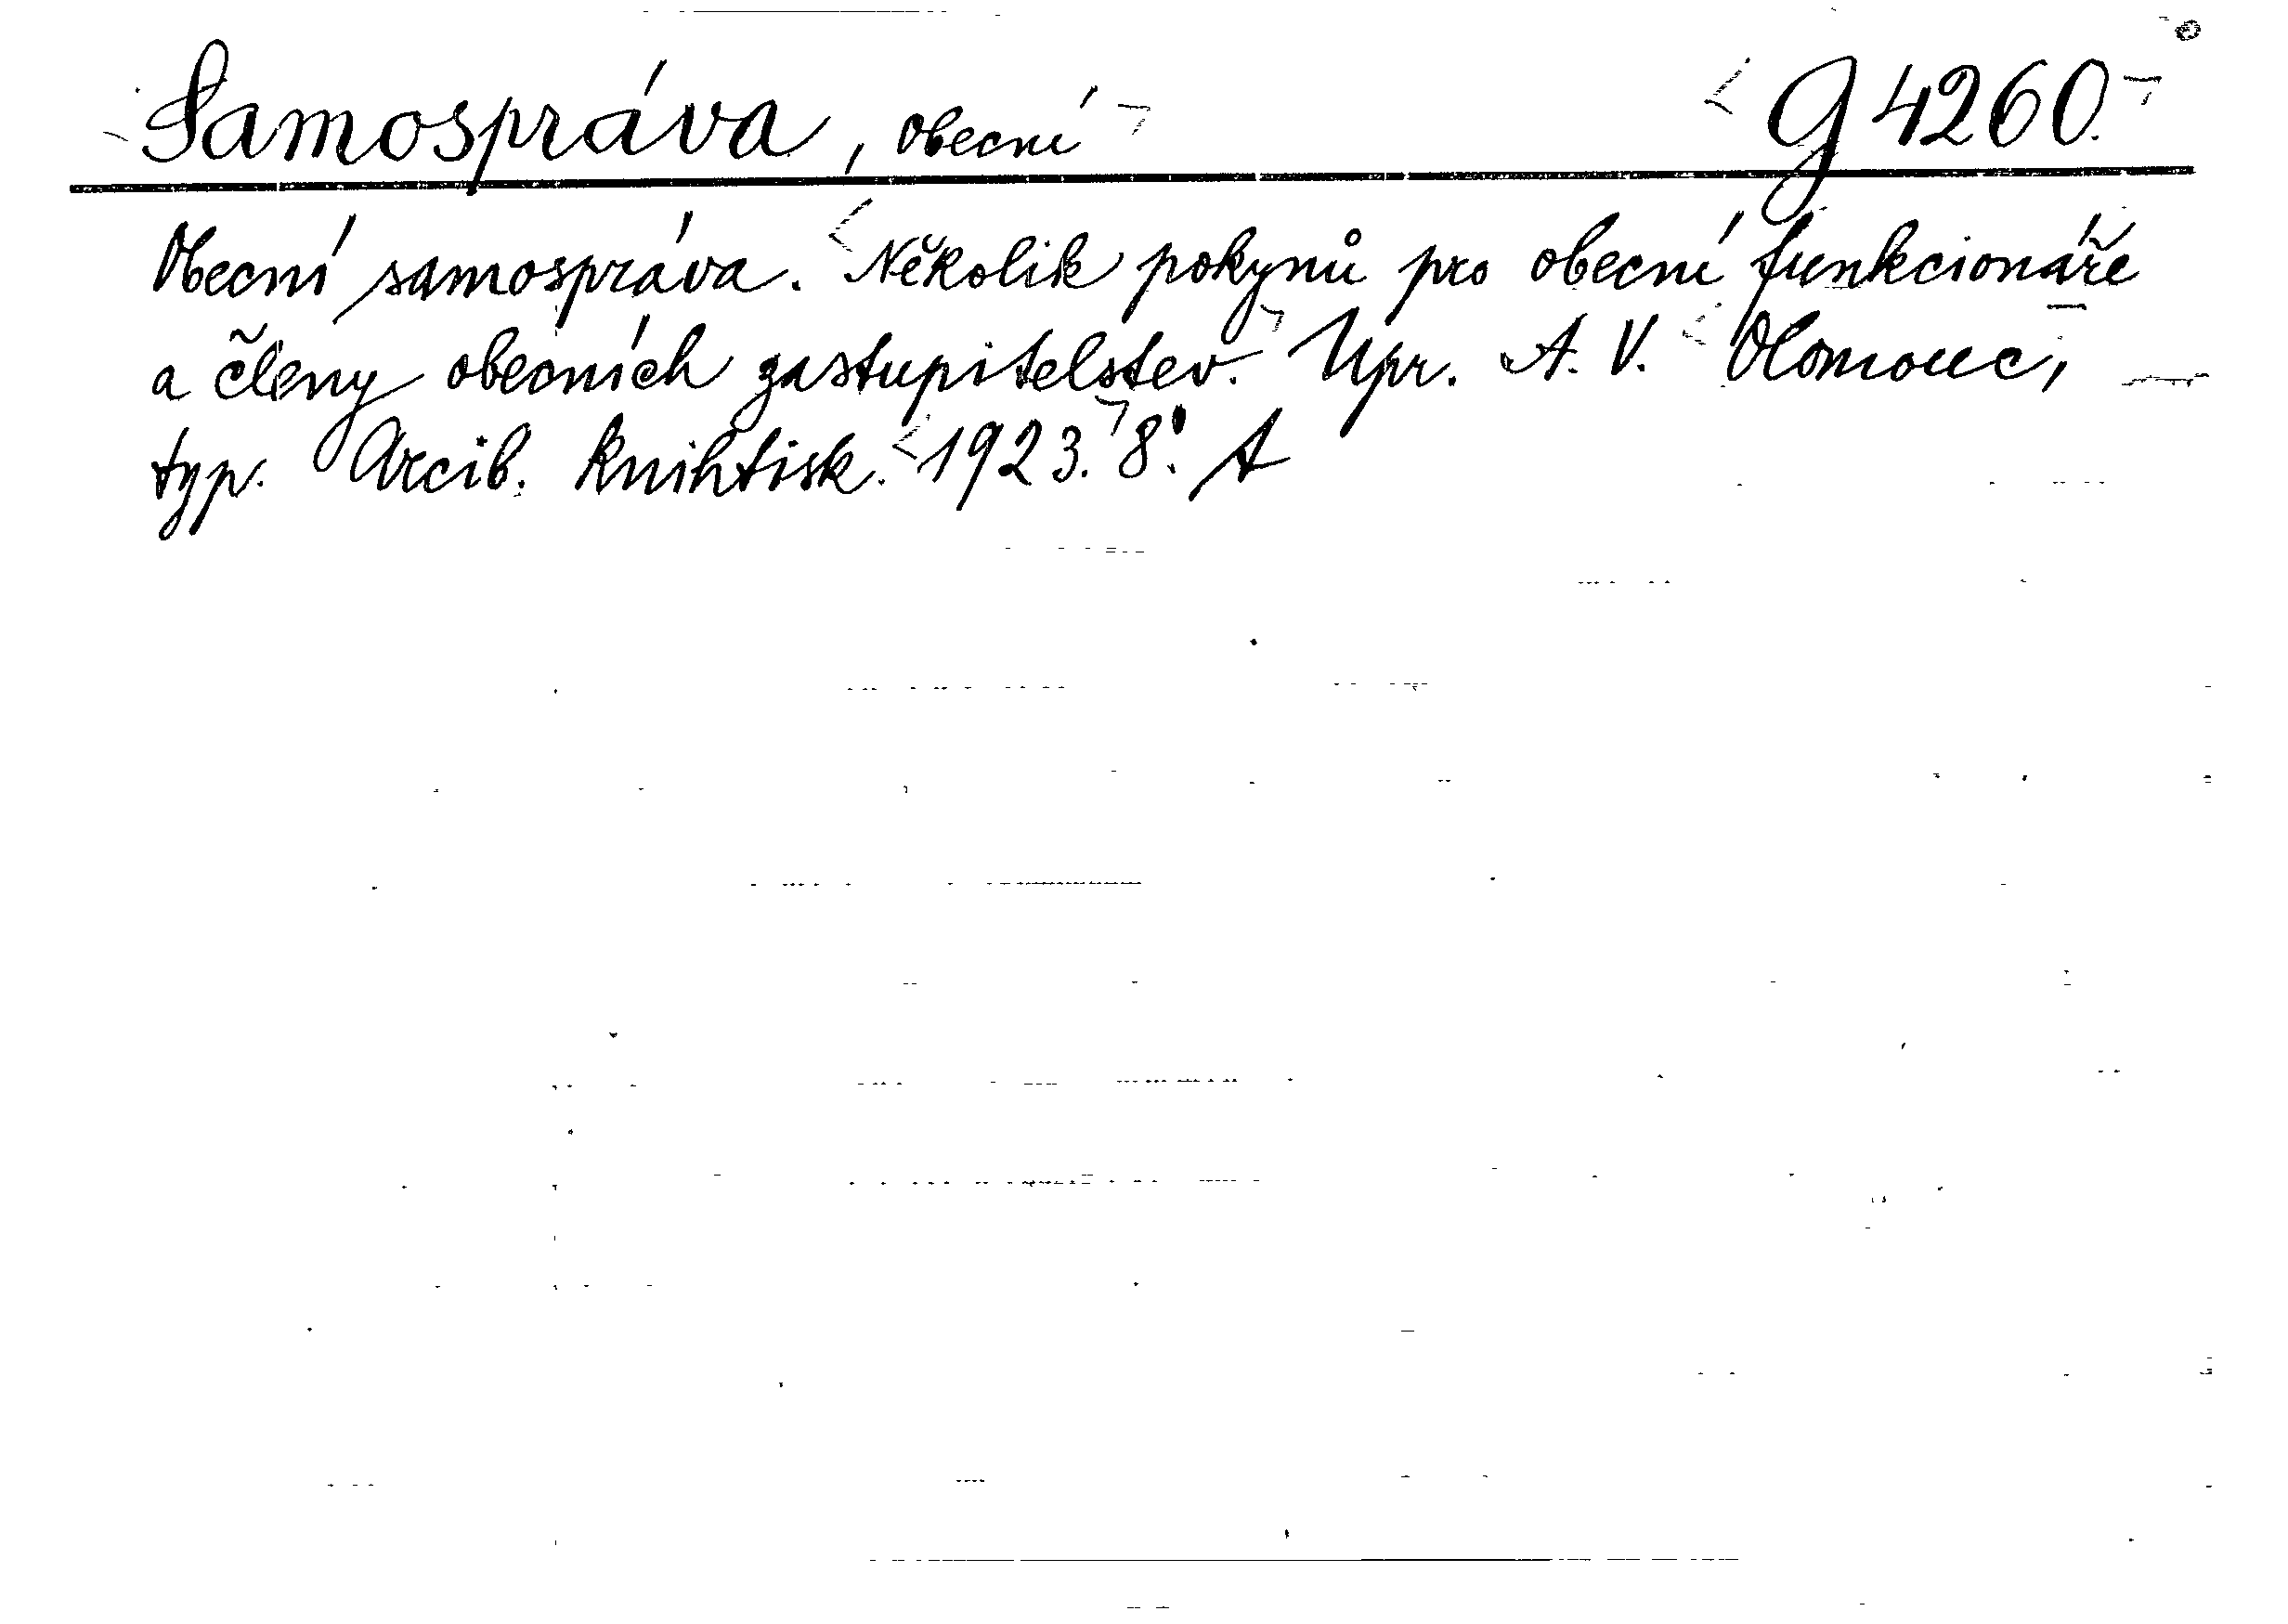 Samospráva, obecní G 4260.
Obecní samospráva. Několik pokynů pro obecní funkcionáře
a členy obecních zastupitelstev. Upr. A. V. Olomouc,
typ. Arcib. knihtisk. 1923. 8°. A